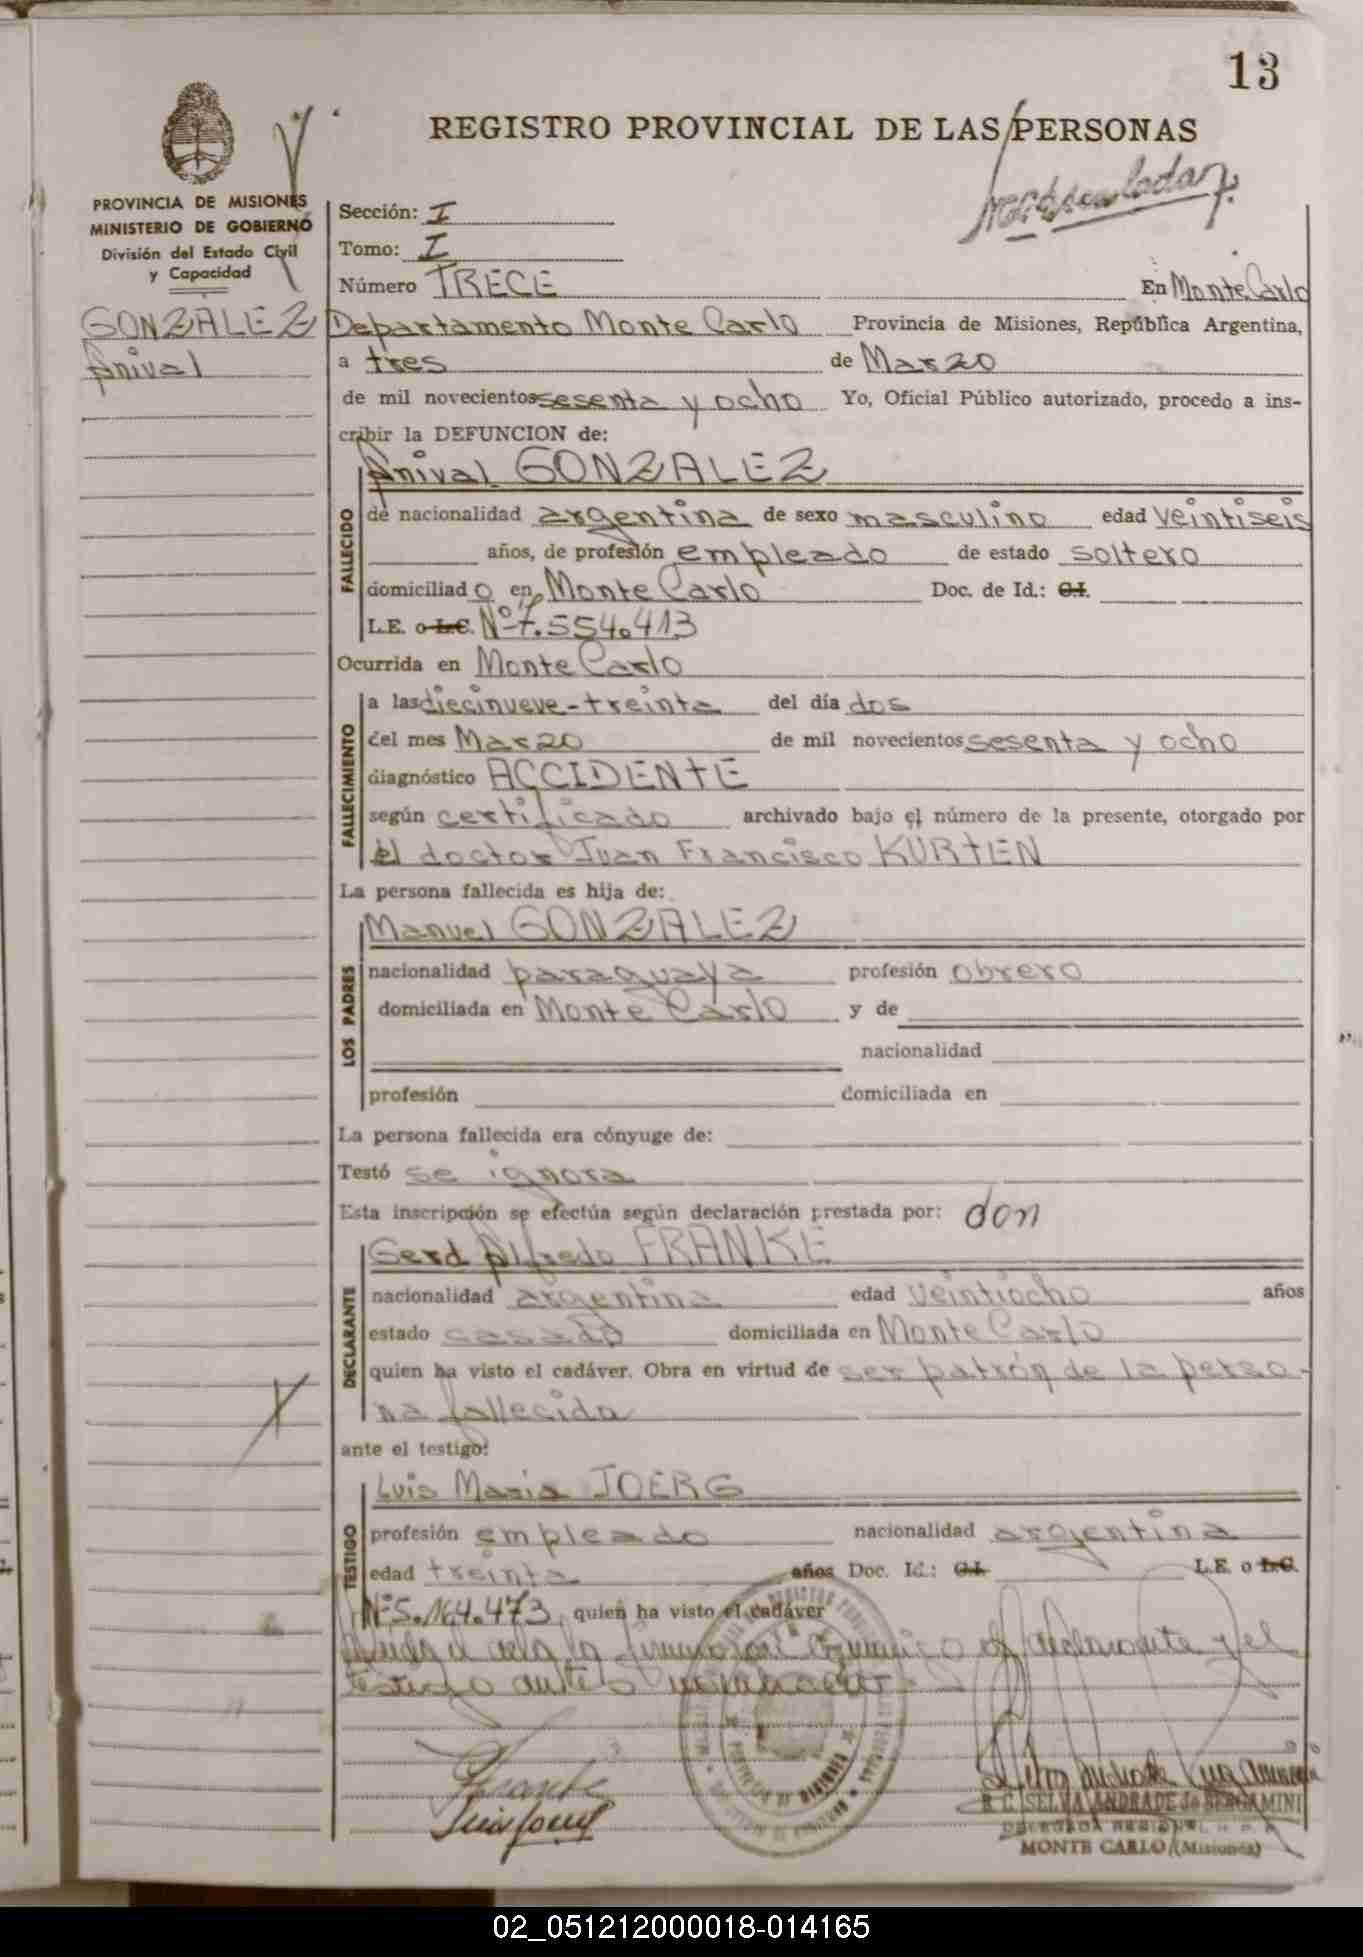 13
REGISTRO PROVINCIAL DE LAS PERSONAS
PROVINCIA DE MISIONES
MINISTERIO DE GOBIERNO
División del Estado Civil
y Capacidad
GONZALEZ
Anival
Sección: I
Tomo: I
Número TRECE En Monte Carlo
Departamento Monte Carlo Provincia de Misiones, República Argentina,
a tres de Marzo
de mil novecientos sesenta y ocho Yo, Oficial Público autorizado, procedo a ins-
cribir la DEFUNCION de:
Anival GONZALEZ
FALLECIDO
de nacionalidad argentina de sexo masculino edad veintiseis
años, de profesión empleado de estado soltero
domiciliado en Monte Carlo Doc. de Id.: C.I.
L.E. o L.C. Nº 7.554.413
Ocurrida en Monte Carlo
FALLECIMIENTO
a las diecinueve-treinta del día dos
del mes Marzo de mil novecientos sesenta y ocho
diagnóstico ACCIDENTE
según certificado archivado bajo el número de la presente, otorgado por
el doctor Juan Francisco KURTEN
La persona fallecida es hija de:
LOS PADRES
Manuel GONZALEZ
nacionalidad paraguaya profesión obrero
domiciliada en Monte Carlo y de
nacionalidad
profesión domiciliada en
La persona fallecida era cónyuge de:
Testó se ignora
Esta inscripción se efectúa según declaración prestada por: don
DECLARANTE
Gerd Alfredo FRANKE
nacionalidad argentina edad veintiocho años
estado casado domiciliada en Monte Carlo
quien ha visto el cadáver. Obra en virtud de ser patrón de la perso-
na fallecida
ante el testigo:
TESTIGO
Luis Maria JOERG
profesión empleado nacionalidad argentina
edad treinta años Doc. Id.: C.I. L.E. o L.C.
quien ha visto el cadáver
el declarante y el
testigo antes
R. C. SELVA ANDRADE de BERGAMINI
MONTE CARLO (Misiones)
02_051212000018-014165